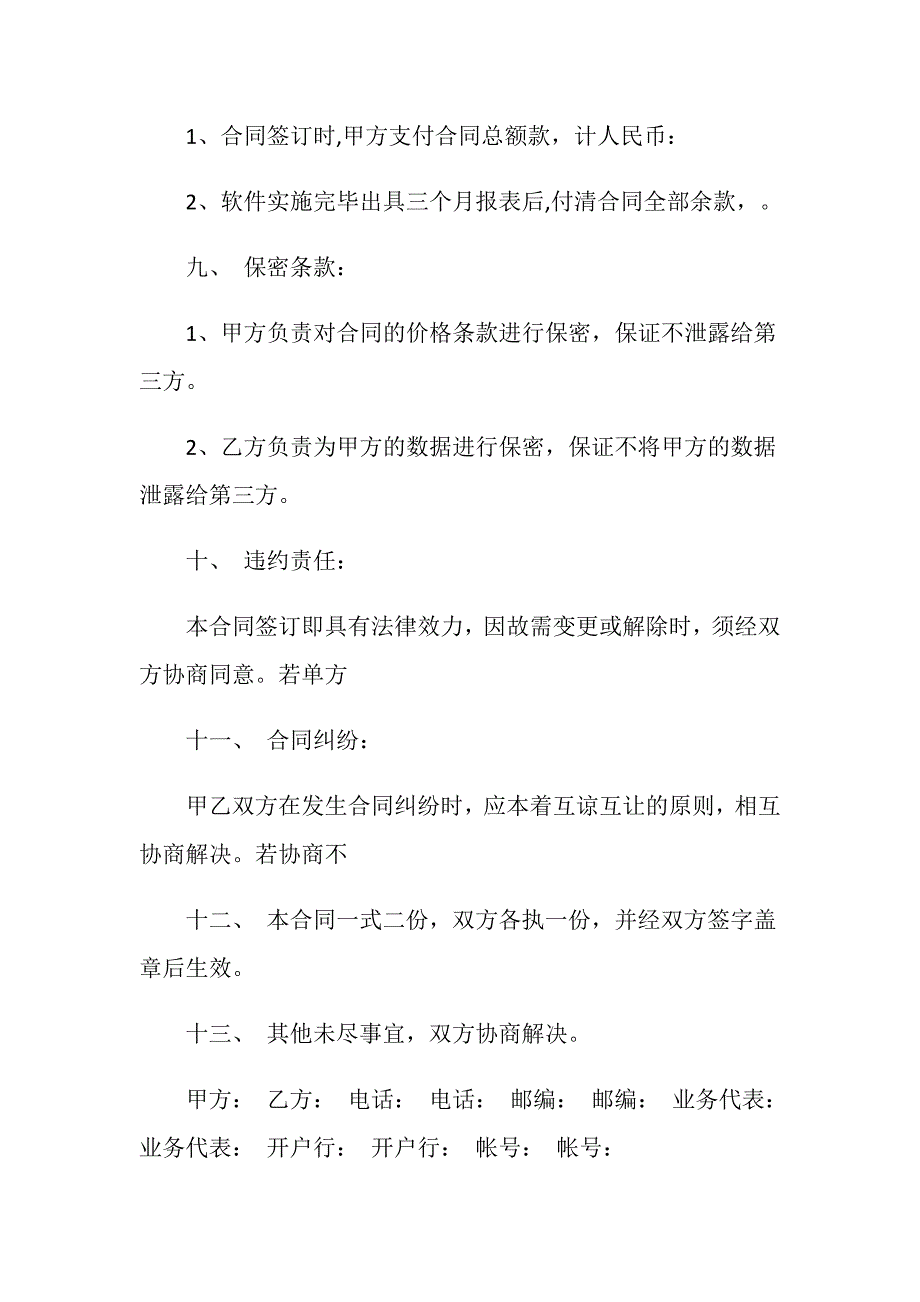 1、合同签订时,甲方支付合同总额款，计人民币：
2、软件实施完毕出具三个月报表后,付清合同全部余款，。
九、 保密条款：
1、甲方负责对合同的价格条款进行保密，保证不泄露给第
三方。
2、乙方负责为甲方的数据进行保密，保证不将甲方的数据
泄露给第三方。
十、 违约责任：
本合同签订即具有法律效力，因故需变更或解除时，须经双
方协商同意。若单方
十一、 合同纠纷：
甲乙双方在发生合同纠纷时，应本着互谅互让的原则，相互
协商解决。若协商不
十二、 本合同一式二份，双方各执一份，并经双方签字盖
章后生效。
十三、 其他未尽事宜，双方协商解决。
甲方： 乙方： 电话： 电话： 邮编： 邮编： 业务代表：
业务代表： 开户行： 开户行： 帐号： 帐号：